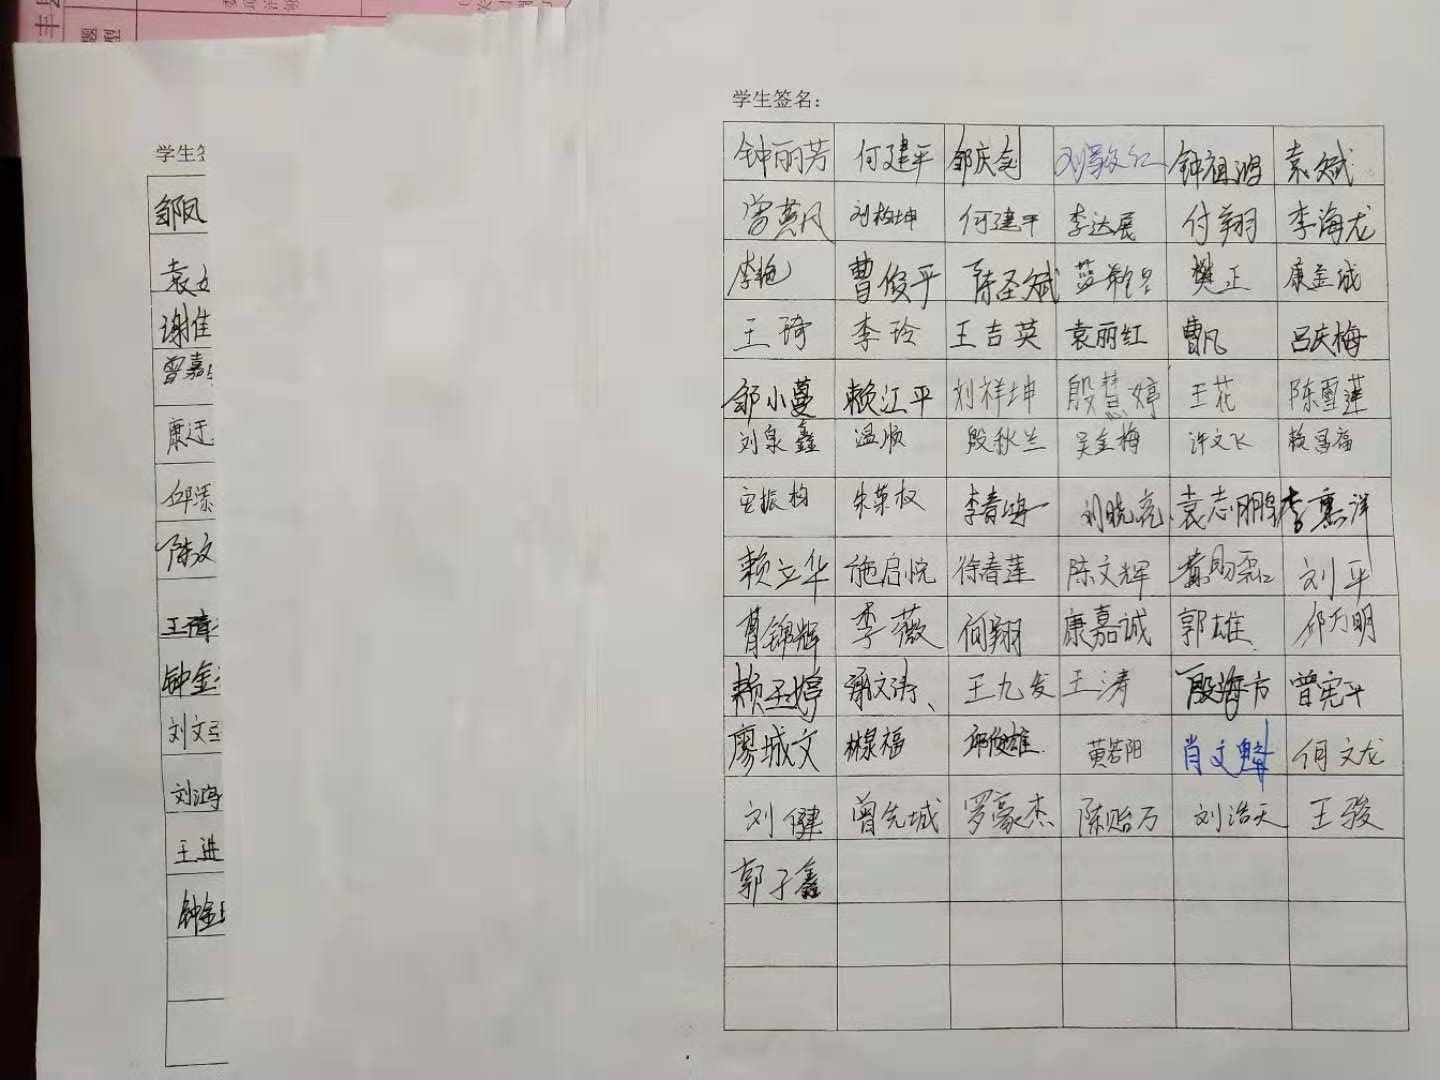 学生签名:
钟丽芳 何建平 邹庆剑 刘敏仁 钟祖鸿 袁斌
曾燕凡 刘柏坤 何建平 李达展 付翔 李海龙
李艳 曹俊平 陈圣斌 樊正 康金城
王琦 李玲 王吉英 袁丽红 曹凡 吕庆梅
邹小蔓 赖江平 刘祥坤 殷慧婷 王花 陈雪莲
刘泉鑫 温顺 殷秋兰 吴金梅 许文飞 赖昌福
朱荣权 李春鸿 刘晓亮 袁志鹏 李熏洋
赖立华 施启悦 徐春莲 陈文辉 刘平
曹锦辉 李薇 何翔 康嘉诚 郭雄 邱万明
赖玉婷 谢文涛 王九发 王涛 殷海方 曾宪平
廖城文 林泉福 邱俊雄 黄若阳 肖文魁 何文龙
刘健 曾先城 罗豪杰 陈贻万 刘浩天 王骏
郭子鑫
学生
邹凤
袁
谢佳
曾嘉
康迁
邱添
陈文
王伟
钟金
刘文
刘鸿
王进
钟金